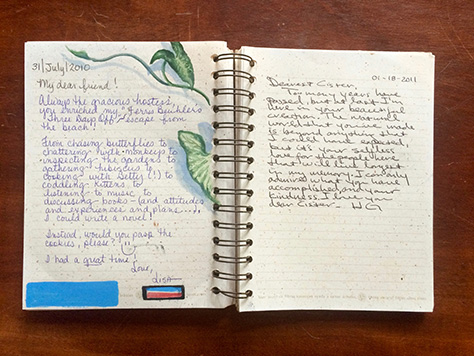 31/July/2010
My dear friend!
Always the gracious hostess,
you enriched my "Ferris Beuhler's
Three Days Off" escape from
the beach!
From chasing butterflies to
chattering with monkeys to
inspecting the gardens to
gathering hibiscus to
cooking with Setter (!) to
coddling kittens, to
listening to music, to
discussing books - (and attitudes
and experiences and plans....),
I could write a novel!
Instead, would you pass the
cookies, please?
I had a great time!
Love,
LISA
01-18-2011
Dearest Cister,
Too many years have
passed, but at last I'm
here in your beautiful
creation. The natural
world that you've made
is beyond anything that
I could have expected,
but it's your selfless
love for the people here
that will last forever
in my memory. I can only
admire what you have
accomplished, and your
kindness. I love you
dear Cister -